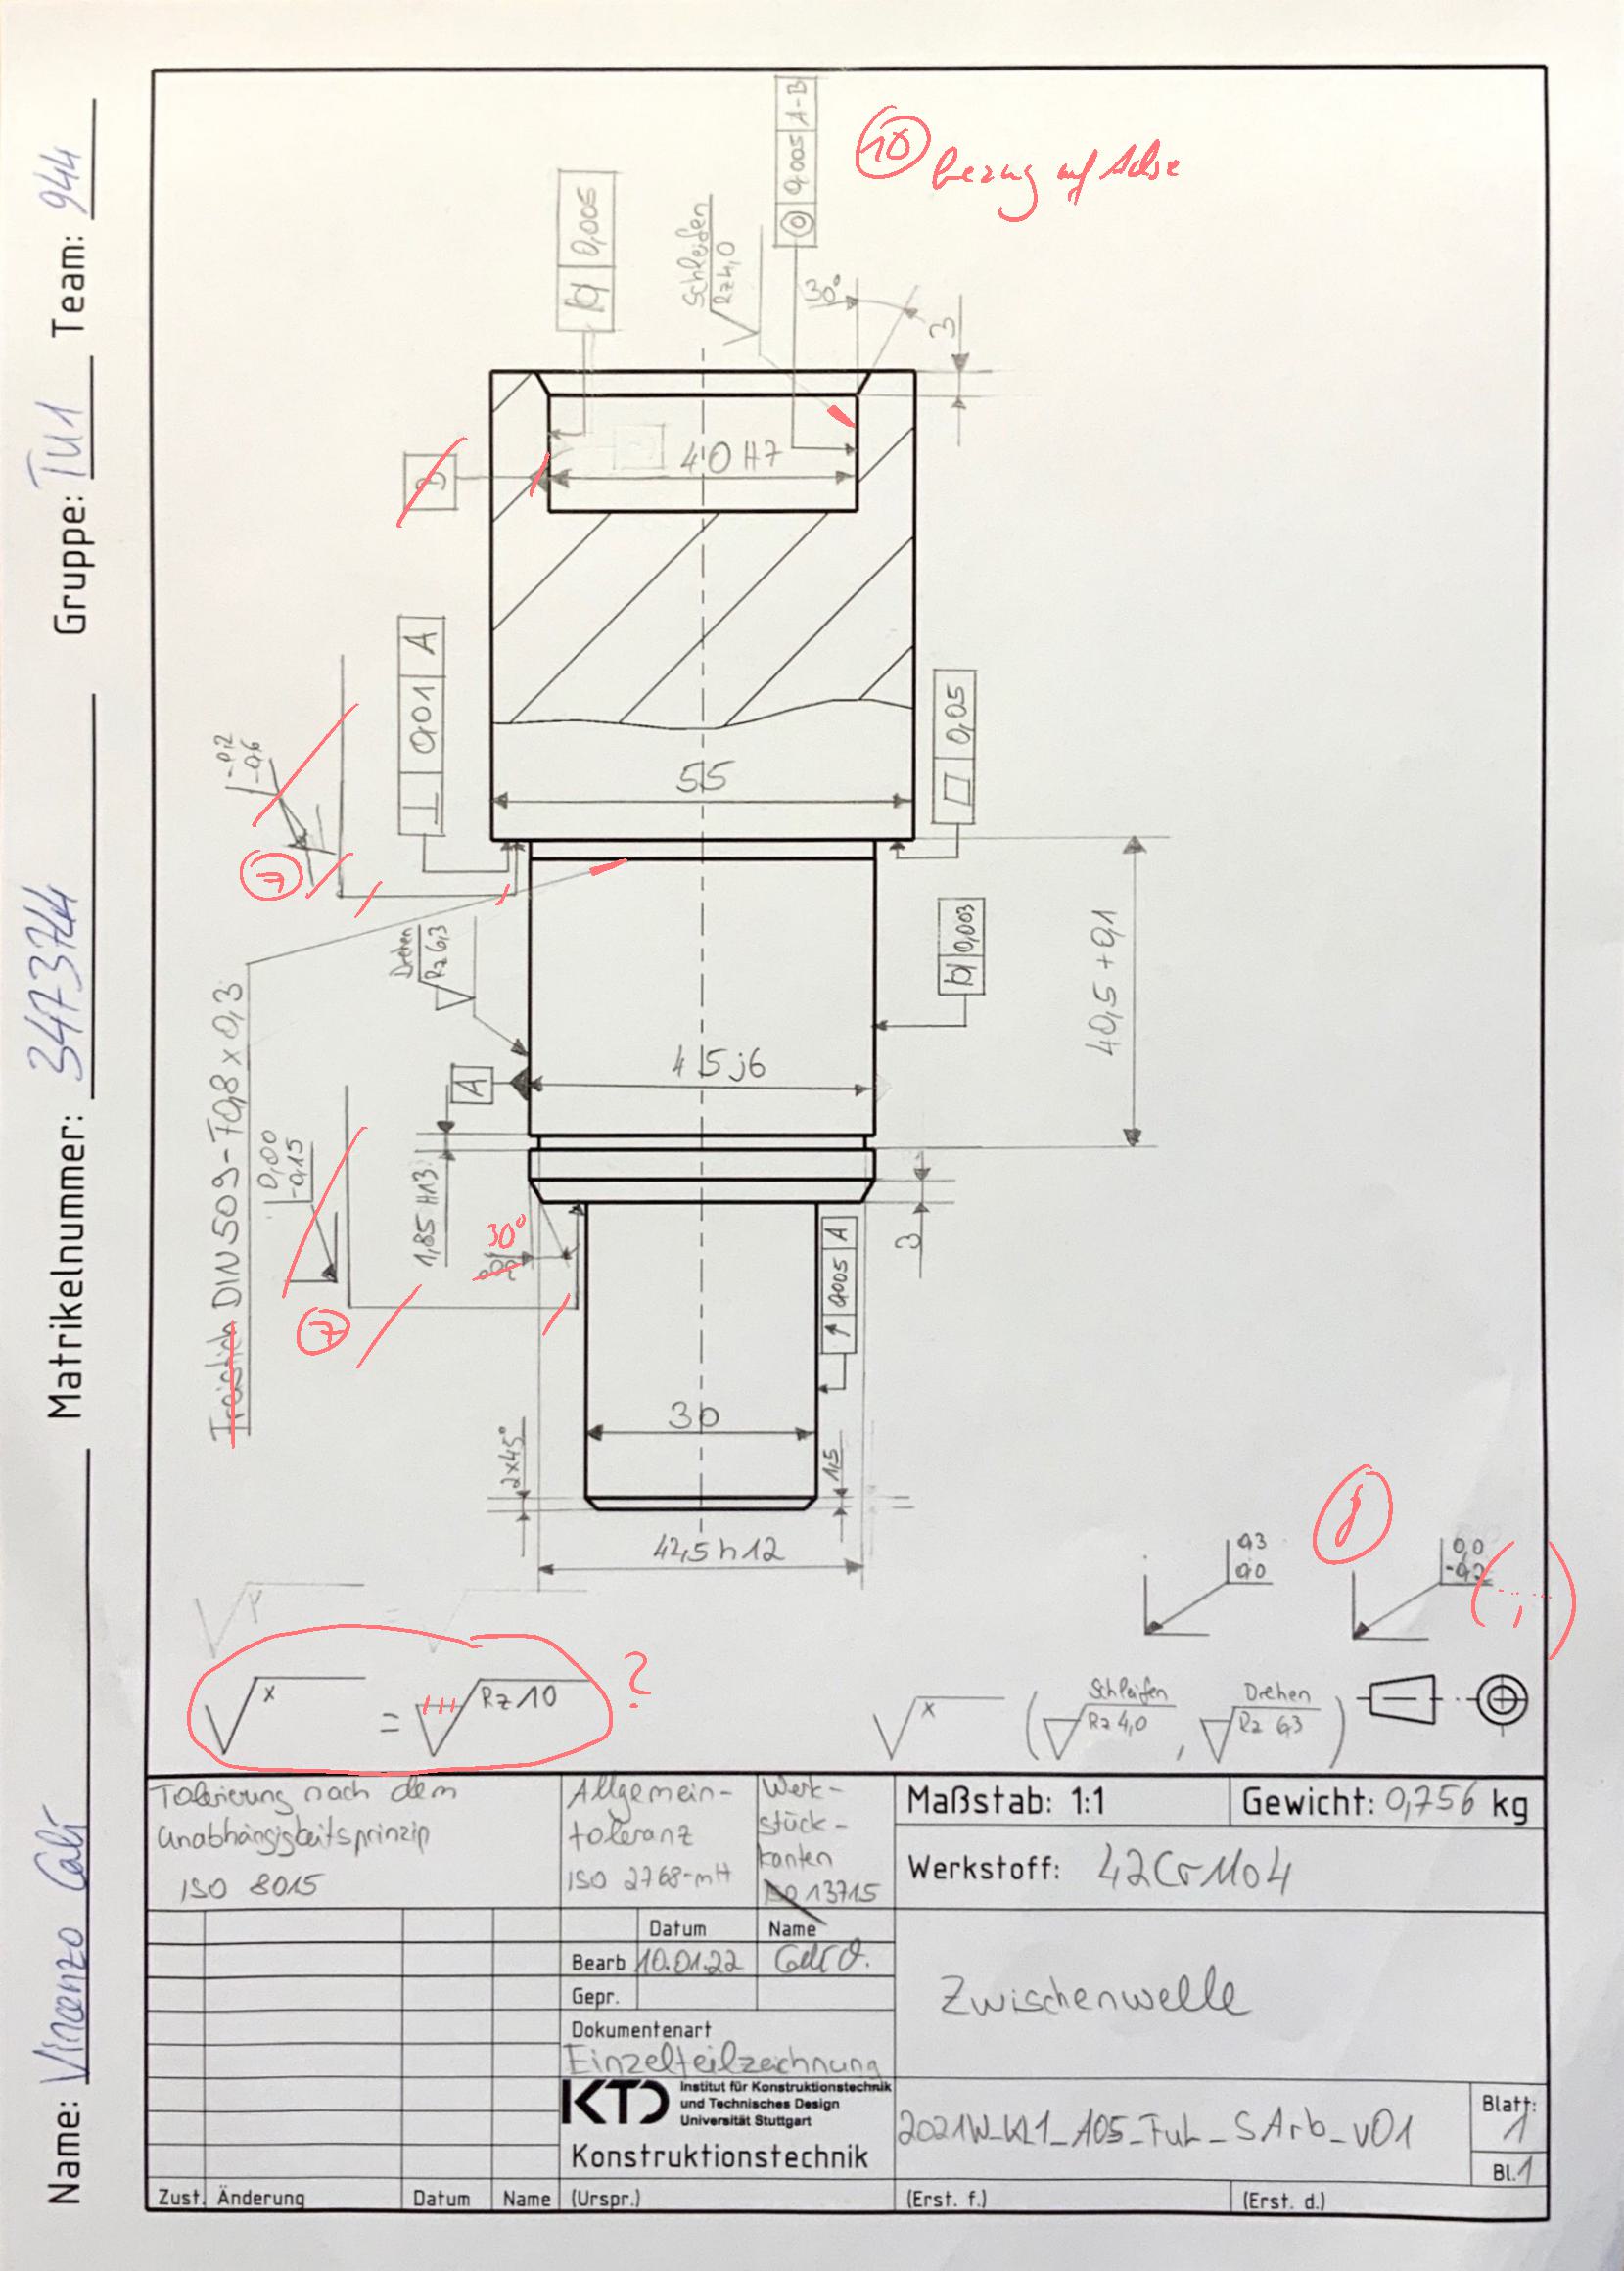 Name: Vincenzo Calì Matrikelnummer: 3473744 Gruppe: TU1 Team: 944
10
bezug auf Achse
0,005 A-B
0,005
Schleifen
Rz 4,0
30°
3
40 H7
0,01 A
-0,2
-0,6
7
55
0,05
Drehen
Rz 6,3
0,003
40,5 +0,1
Freistich DIN 509 - F0,8 x 0,3
A
45 j6
0,00
-0,15
1,85 H13
30°
7
3
0,005 A
30
2x45°
1,5
42,5 h12
0,3
0,0
8
0,0
-0,2
x = Rz 10 ?
x ( Schleifen Rz 4,0 , Drehen Rz 6,3 )
Tolerierung nach dem
Unabhängigkeitsprinzip
ISO 8015
Allgemein-
toleranz
ISO 2768-mH
Werk-
stück-
kanten
ISO 13715
Maßstab: 1:1
Gewicht: 0,756 kg
Werkstoff: 42CrMo4
Datum Name
Bearb 10.01.22 Calì V.
Gepr.
Dokumentenart
Einzelteilzeichnung
Zwischenwelle
KTD Institut für Konstruktionstechnik
und Technisches Design
Universität Stuttgart
Konstruktionstechnik
2021W_KL1_A05_FuL_SArb_v01
Blatt:
1
Bl.1
Zust. Änderung Datum Name (Urspr.) (Erst. f.) (Erst. d.)